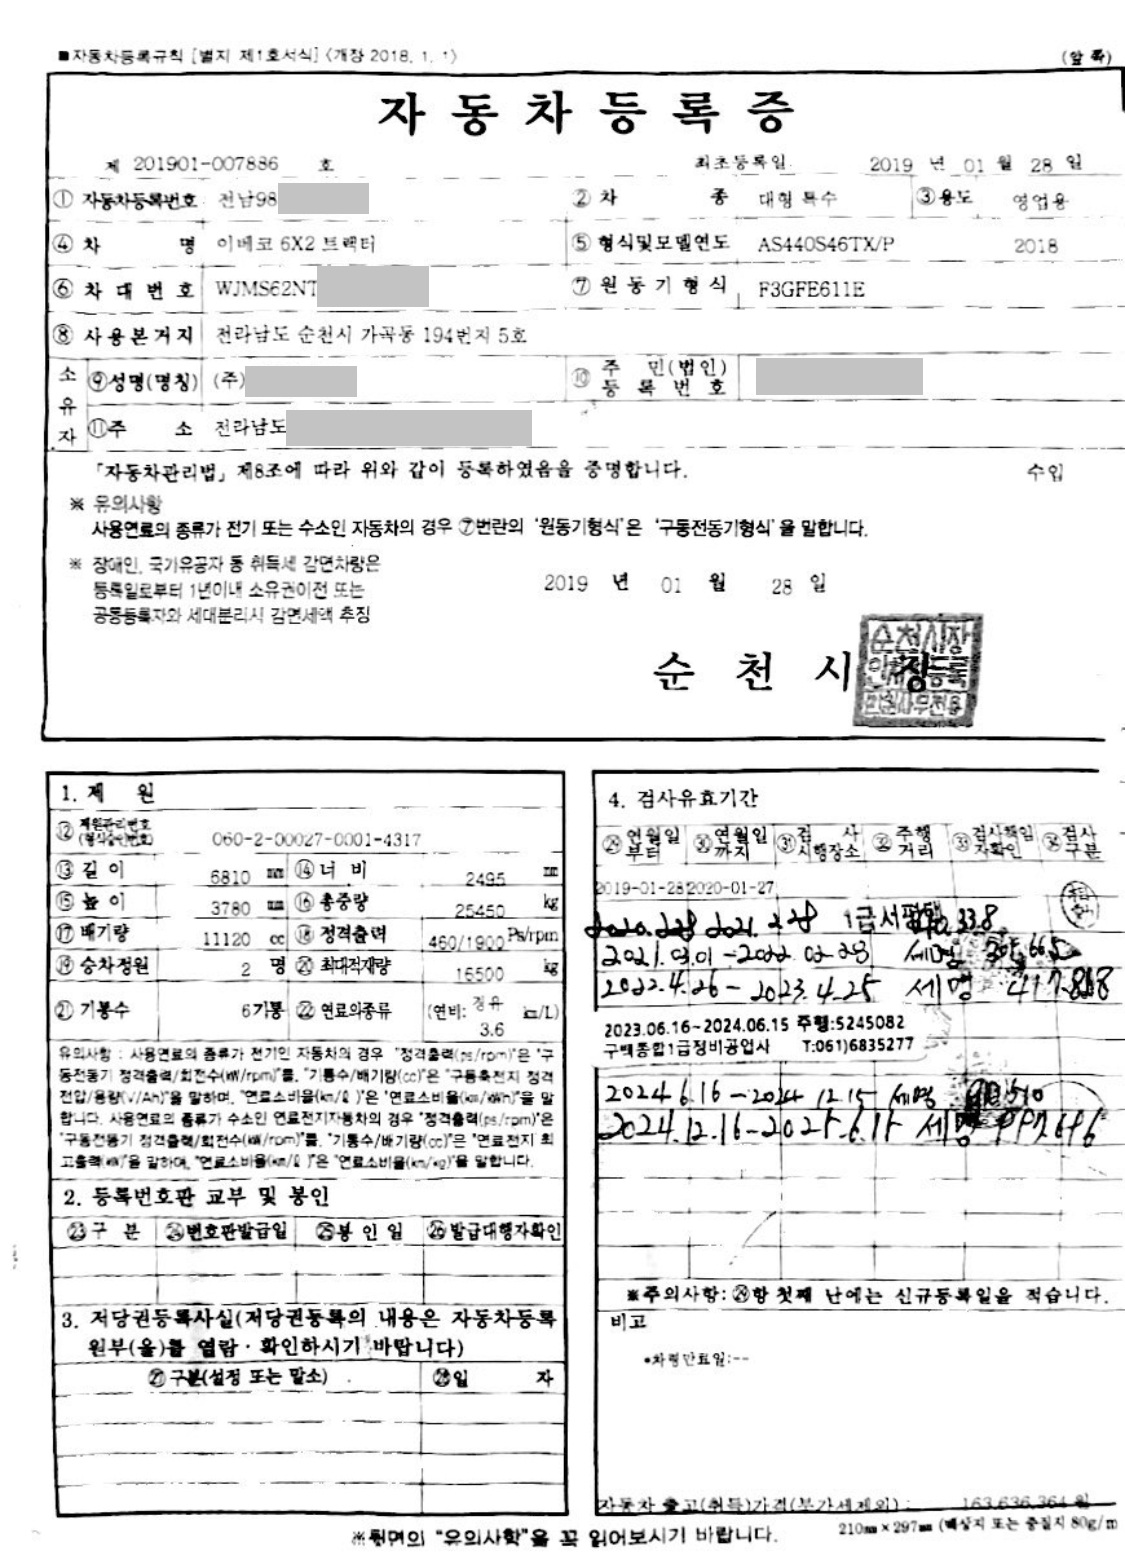 ■자동차등록규칙 [별지 제1호서식] 〈개정 2018. 1. 1〉 (앞 쪽)
자동차등록증
제 201901-007886 호 최초등록일 2019 년 01 월 28 일
① 자동차등록번호 전남98 ② 차 종 대형 특수 ③용도 영업용
④ 차 명 이베코 6X2 트랙터 ⑤ 형식및모델연도 AS440S46TX/P 2018
⑥ 차대번호 WJMS62NT ⑦ 원동기형식 F3GFE611E
⑧ 사용본거지 전라남도 순천시 가곡동 194번지 5호
소유자 ⑨성명(명칭) (주) ⑩ 주민(법인)등록번호
⑪주 소 전라남도
「자동차관리법」 제8조에 따라 위와 같이 등록하였음을 증명합니다. 수입
※ 유의사항
사용연료의 종류가 전기 또는 수소인 자동차의 경우 ⑦번란의 '원동기형식'은 '구동전동기형식'을 말합니다.
※ 장애인, 국가유공자 등 취득세 감면차량은
등록일로부터 1년이내 소유권이전 또는
공동등록자와 세대분리시 감면세액 추징
2019 년 01 월 28 일
순천시장
순천시장
1. 제 원
⑫ 제원관리번호(형식승인번호) 060-2-00027-0001-4317
⑬ 길 이 6810 mm ⑭ 너 비 2495 mm
⑮ 높 이 3780 mm ⑯ 총중량 25450 kg
⑰ 배기량 11120 cc ⑱ 정격출력 460/1900 Ps/rpm
⑲ 승차정원 2 명 ⑳ 최대적재량 16500 kg
㉑ 기통수 6기통 ㉒ 연료의종류 경유 (연비: 3.6 km/L)
유의사항 : 사용연료의 종류가 전기인 자동차의 경우 "정격출력(ps/rpm)"은 "구
동전동기 정격출력/회전수(kW/rpm)"를, "기통수/배기량(cc)"은 "구동축전지 정격
전압/용량(V/Ah)"을 말하며, "연료소비율(km/ℓ)"은 "연료소비율(km/kWh)"을 말
합니다. 사용연료의 종류가 수소인 연료전지자동차의 경우 "정격출력(ps/rpm)"은
"구동전동기 정격출력/회전수(kW/rpm)"를, "기통수/배기량(cc)"은 "연료전지 최
고출력(kW)"을 말하며, "연료소비율(km/ℓ)"은 "연료소비율(km/kg)"을 말합니다.
2. 등록번호판 교부 및 봉인
㉓구 분 ㉔번호판발급일 ㉕봉 인 일 ㉖발급대행자확인
3. 저당권등록사실(저당권등록의 내용은 자동차등록
원부(을)를 열람·확인하시기 바랍니다)
㉗구분(설정 또는 말소) ㉘일 자
4. 검사유효기간
㉙연월일부터 ㉚연월일까지 ㉛검 사시행장소 ㉜주행거리 ㉝검사책임자확인 ㉞검사구분
2019-01-28 2020-01-27
2020. 2.28 2021. 2.28 1급서평택
2021.03.01 -2022.02.28 세명
2022.4.26 - 2023.4.25 세명
2023.06.16~2024.06.15 주행:5245082
구백통합1급정비공업사 T:061)6835277
2024.6.16 -2024.12.15 세명
2024.12.16 -2025.6.15 세명
※주의사항: ㉙항 첫째 난에는 신규등록일을 적습니다.
비고
•차령만료일:--
자동차 출고(취득)가격(부가세제외) : 163,636,364 원
※뒷면의 "유의사항"을 꼭 읽어보시기 바랍니다.
210㎜×297㎜ (백상지 또는 중질지 80g/m